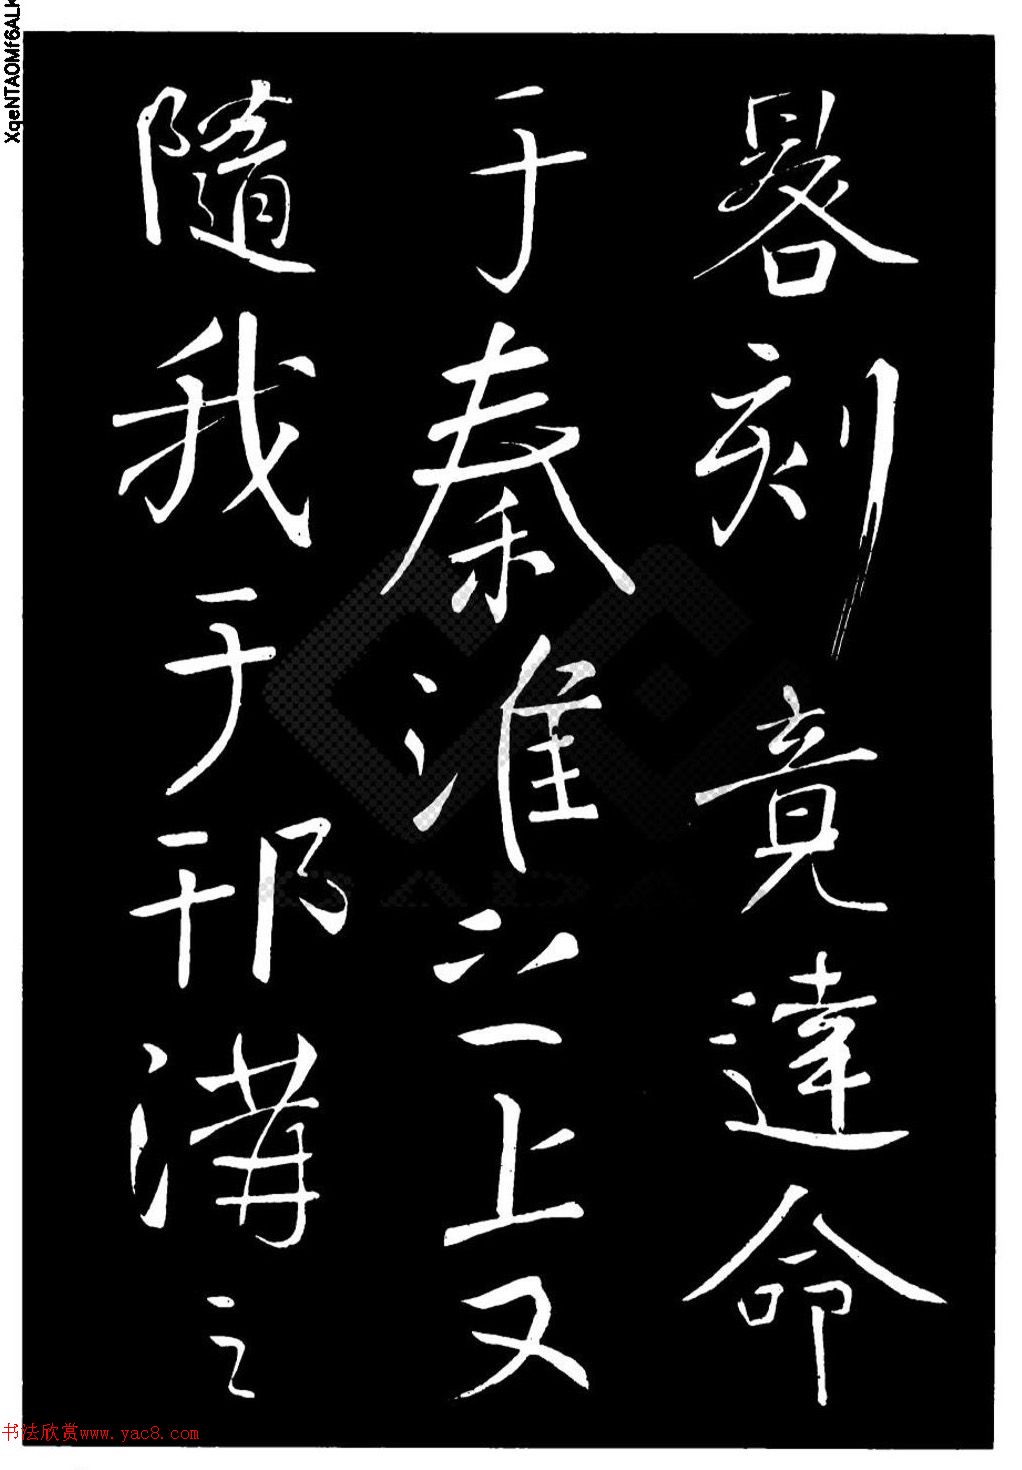 晷刻竟達命
于秦淮之上又
隨我于邗溝之
XqeNTAOMf6ALK
书法欣赏www.yac8.com